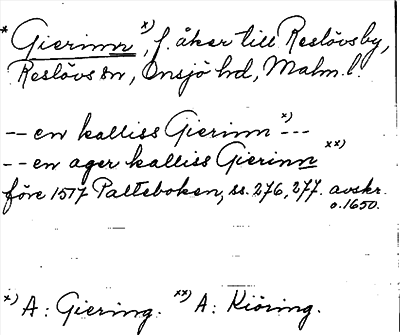 * Gierinn x), f. åker till Reslövsby,
Reslövs sn, Onsjö hd, Malm. l.
-- en kalliss Gierinn x) ---
-- en ager kalliss Gierinn xx)
före 1517 Palteboken, ss. 276, 277. avskr.
o. 1650.
x) A: Giering. xx) A: Kiöring.